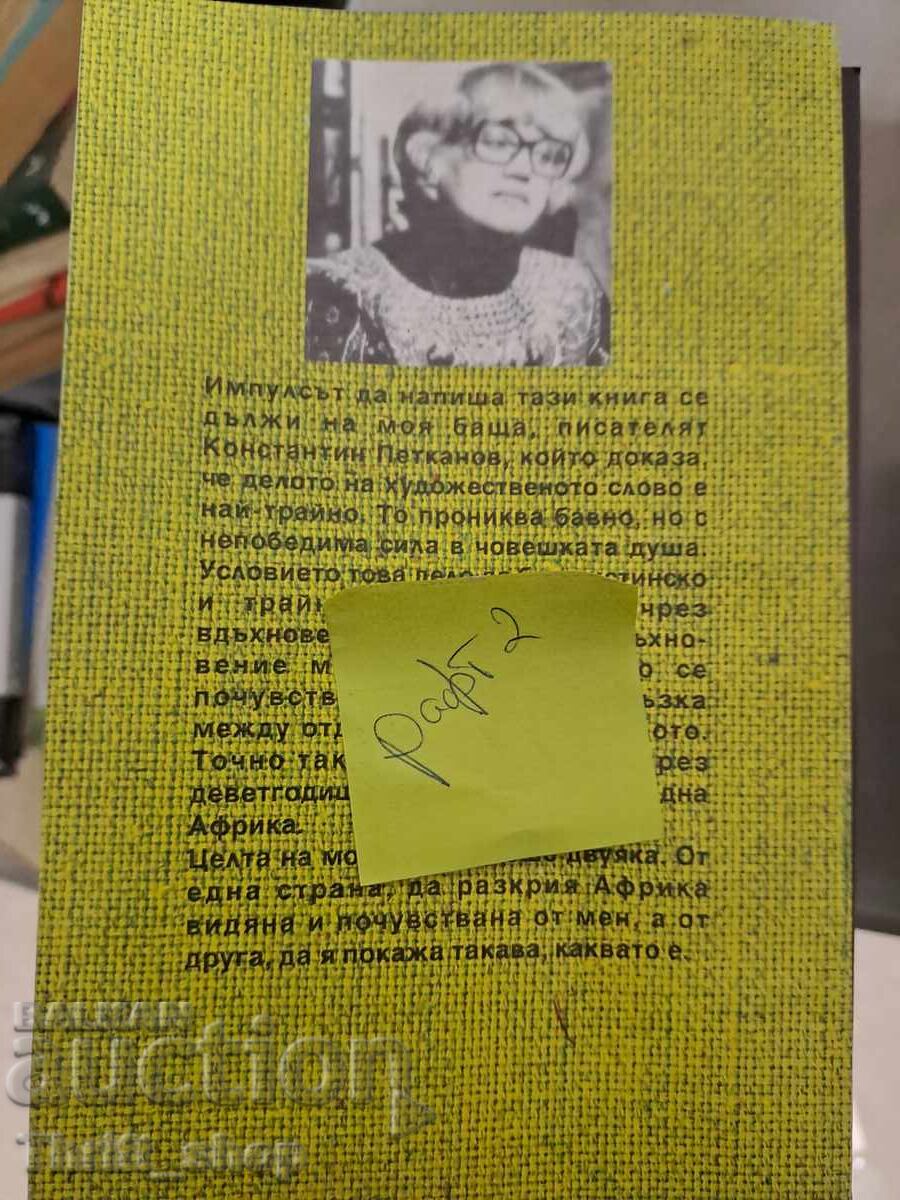 Импулсът да напиша тази книга се
дължи на моя баща, писателят
Константин Петканов, който доказа,
че делото на художественото слово е
най-трайно. То прониква бавно, но с
непобедима сила в човешката душа.
Условието това дело
и
вдъхнове
вение м о се
почувств ръзка
между отд ото.
Точно так рез
деветгодиш дна
Африка.
Целта на мо двуяка. От
една страна, да разкрия Африка
видяна и почувствана от мен, а от
друга, да я покажа такава, каквато е.
рафт 2
BALKAN
auction
Thikk_shop